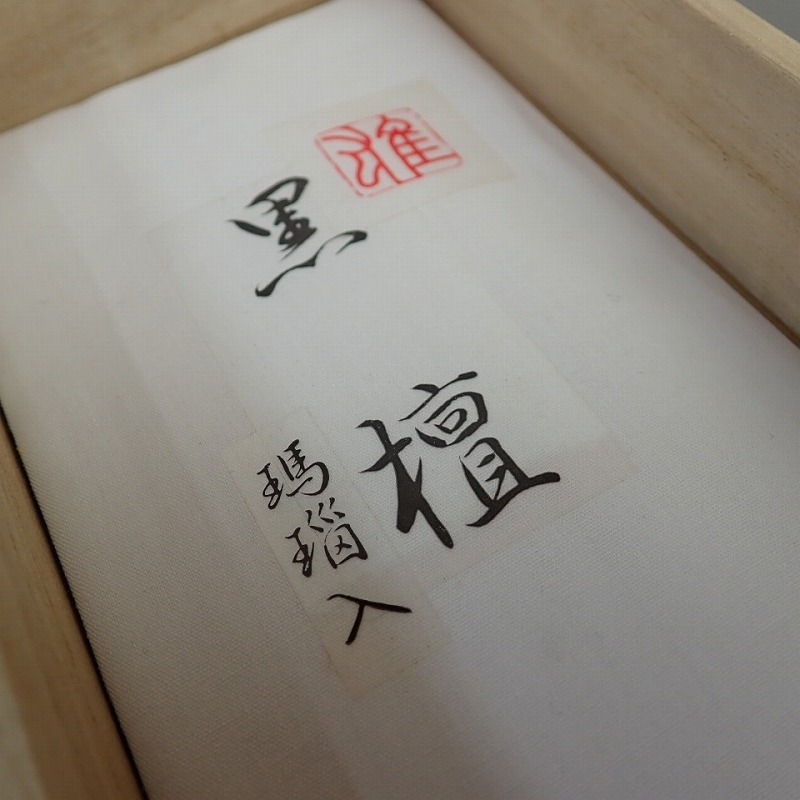 雅
黒檀
瑪瑙入